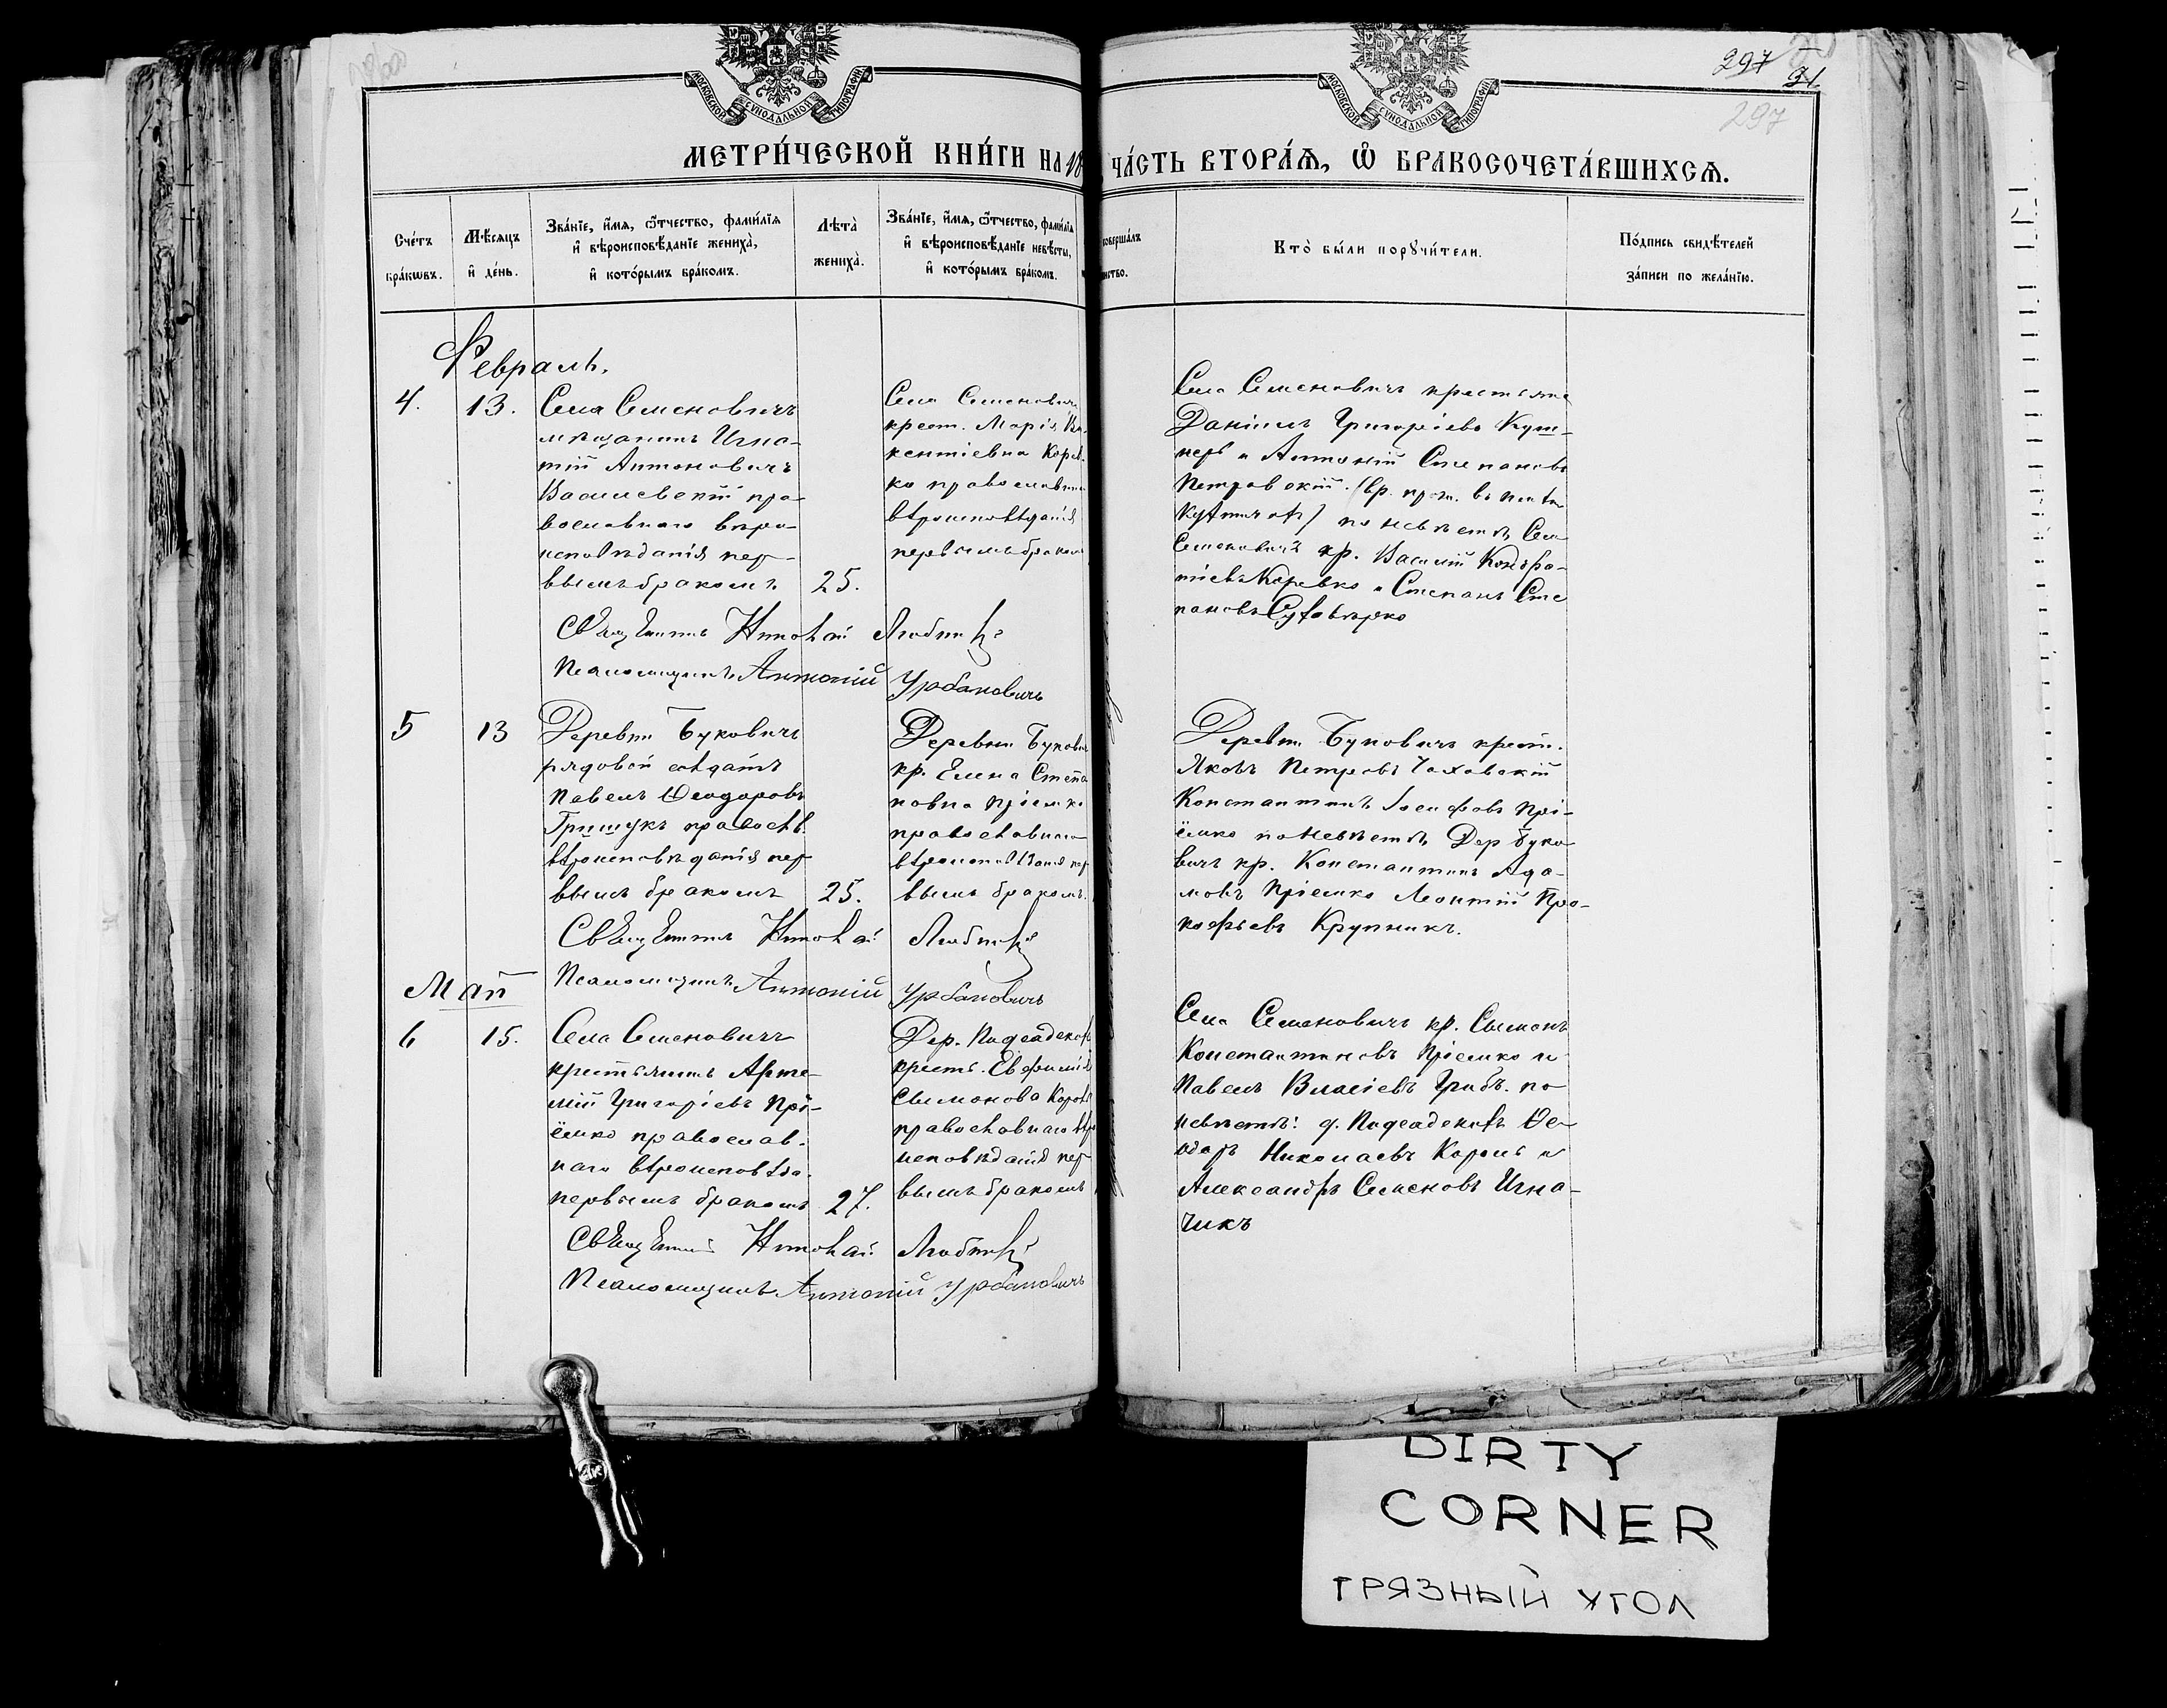 297 31
297
МОСКОВСКОЙ СѴНОДАЛЬНОЙ ТИПОГРАФІИ
МОСКОВСКОЙ СѴНОДАЛЬНОЙ ТИПОГРАФІИ
МЕТРИ́ЧЕСКОЙ КНИ́ГИ НА 18 ЧА́СТЬ ВТОРА́Ѧ, Ѽ БРАКОСОЧЕТА́ВШИХСѦ.
Сче́тъ бра́кѡвъ.
Мѣ́сяцъ и҆ де́нь.
Зва́нїе, и҆́мѧ, ѻ҆́тчество, фами́лїѧ
и҆ вѣроисповѣ́данїе жениха̀,
и҆ кото́рымъ бра́комъ.
Лѣта̀ жениха̀.
Зва́нїе, и҆́мѧ, ѻ҆́тчество, фами́лїѧ
и҆ вѣроисповѣ́данїе невѣ́сты,
и҆ кото́рымъ бра́комъ.
совершалъ
Кто̀ бы́ли порꙋчи́тели.
По́дпись свидѣ́телей
за́писи по жела́нїю.
Февраль.
4. 13.
Села Семеновичъ
мѣщанинъ Игна-
тій Антоновичъ
Василевскій пра-
вославнаго вѣро-
исповѣданія пер-
вымъ бракомъ 25.
Села Семенович
крест. Марія Ви
кентіевна Корев
ко православна
вѣроисповѣданія
первымъ браком
Села Семеновичъ крестьяне
Даніилъ Григоріевъ Куш-
неръ и Антоній Степановъ
Петровскій
по невѣстѣ Села
Семеновичъ кр. Василій Кондра-
тіевъ Коревко и Степанъ Сте
пановъ
Священникъ Николай
Псаломщикъ Антоній Урбановичъ
5 13
Деревни Буковичъ
рядовой солдатъ
Павелъ Ѳеодоровъ
Грищукъ правосл.
вѣроисповѣданія пер
вымъ бракомъ 25.
Деревни Букович
кр. Елена Степа
новна Пріемко
православнаго
вѣроисповѣданія пер
вымъ бракомъ.
Деревни Буковичъ крест.
Яковъ Петровъ
Константинъ Іосифовъ Прі-
ёмко по невѣстѣ Дер Буко
вичъ кр. Константинъ Ада-
мовъ Пріемко Леонтій Про-
кофьевъ Крупникъ.
Священникъ Николай
Псаломщикъ Антоній Урбановичъ
Май
6 15.
Села Семеновичъ
крестьянинъ Арте-
мій Григоріевъ Прі-
ёмко православ-
наго вѣроисповѣда.
первымъ бракомъ 27.
Дер. Подсадековъ
кресть. Евфимія
Симонова Король
православнаго вѣро
исповѣданія пер
вымъ бракомъ
Села Семеновичъ кр. Симонъ
Константиновъ Пріемко и
Павелъ Власіевъ Грибъ. по
невѣстѣ: д. Подсадековъ Ѳе-
одоръ Николаевъ Король и
Александръ Семеновъ Игна-
чикъ
Священникъ Николай
Псаломщикъ Антоній Урбановичъ
DIRTY
CORNER
ГРЯЗНЫЙ УГОЛ